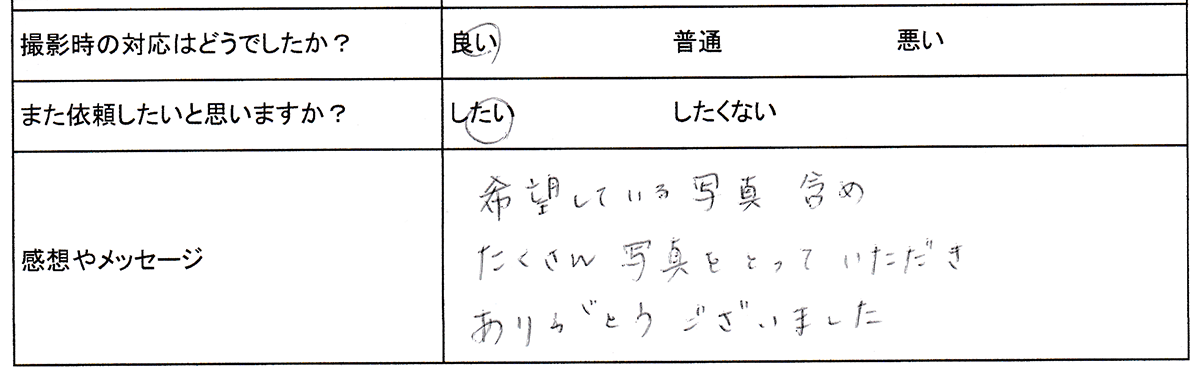 撮影時の対応はどうでしたか？ 良い 普通 悪い
また依頼したいと思いますか？ したい したくない
感想やメッセージ
希望している写真 含め
たくさん 写真をとって いただき
ありがとう ございました